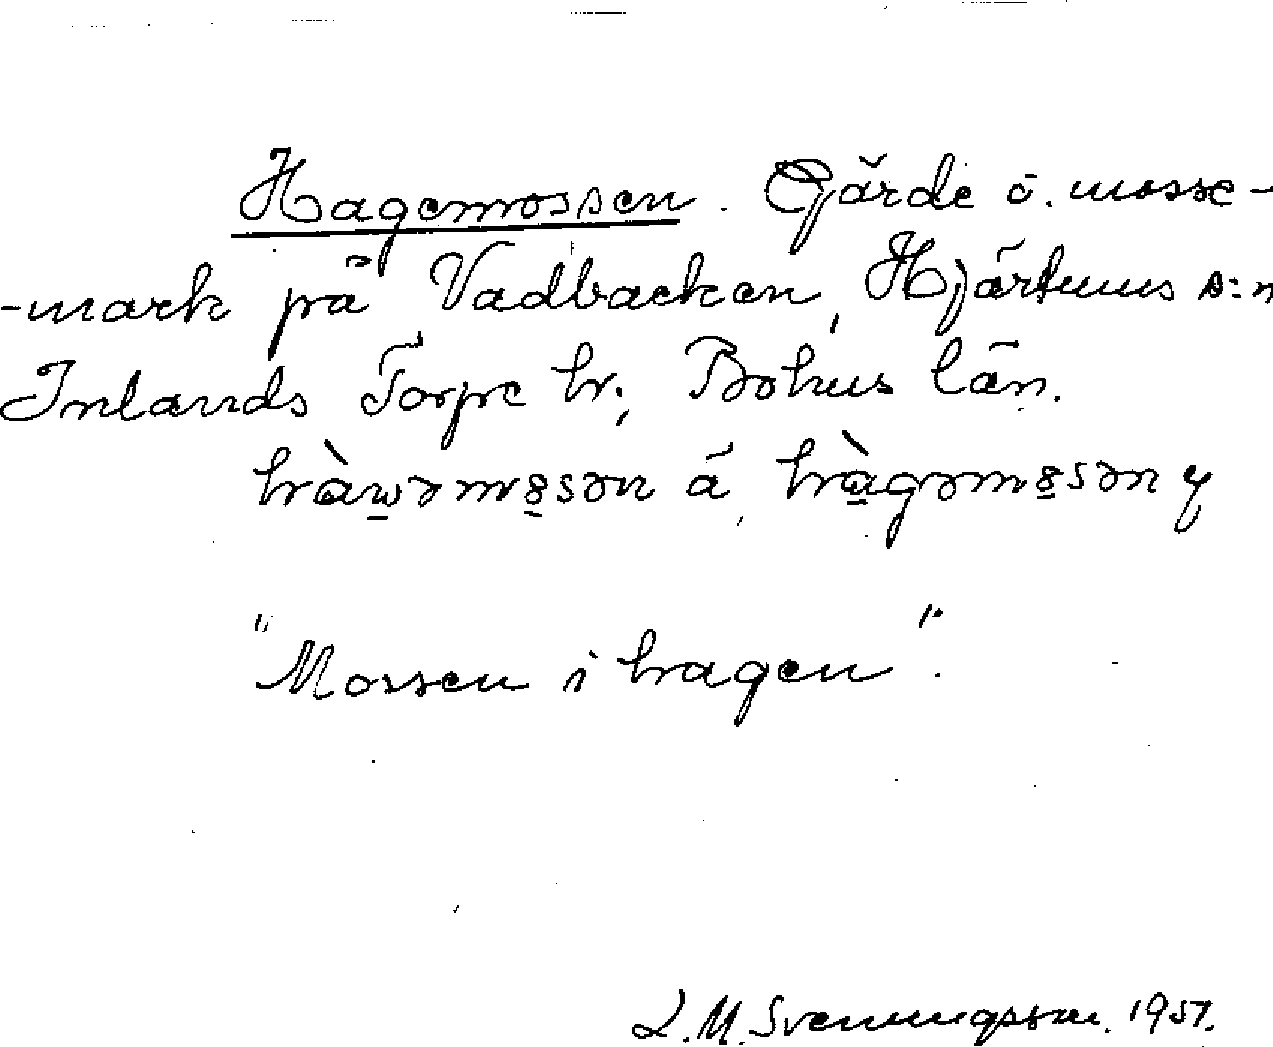 Hagemossen. Gärde o. mosse-
-mark på Vadbacken, Hjärtums s:n
Inlands Torpe hr., Bohus län.
hàwəmȣsən å hàgəmȣsən y
"Mossen i hagen".
L.M. Svenungsson. 1951.